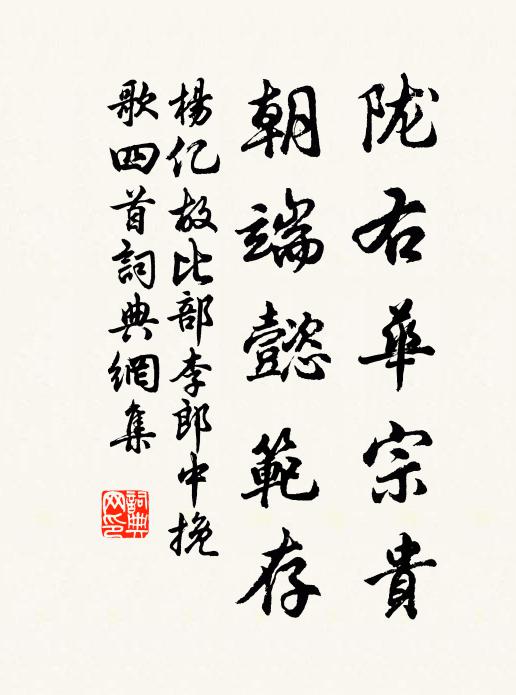 陇右华宗貴
朝端懿範存
楊亿故比部李郎中挽
歌四首詞典網集
詞典网印